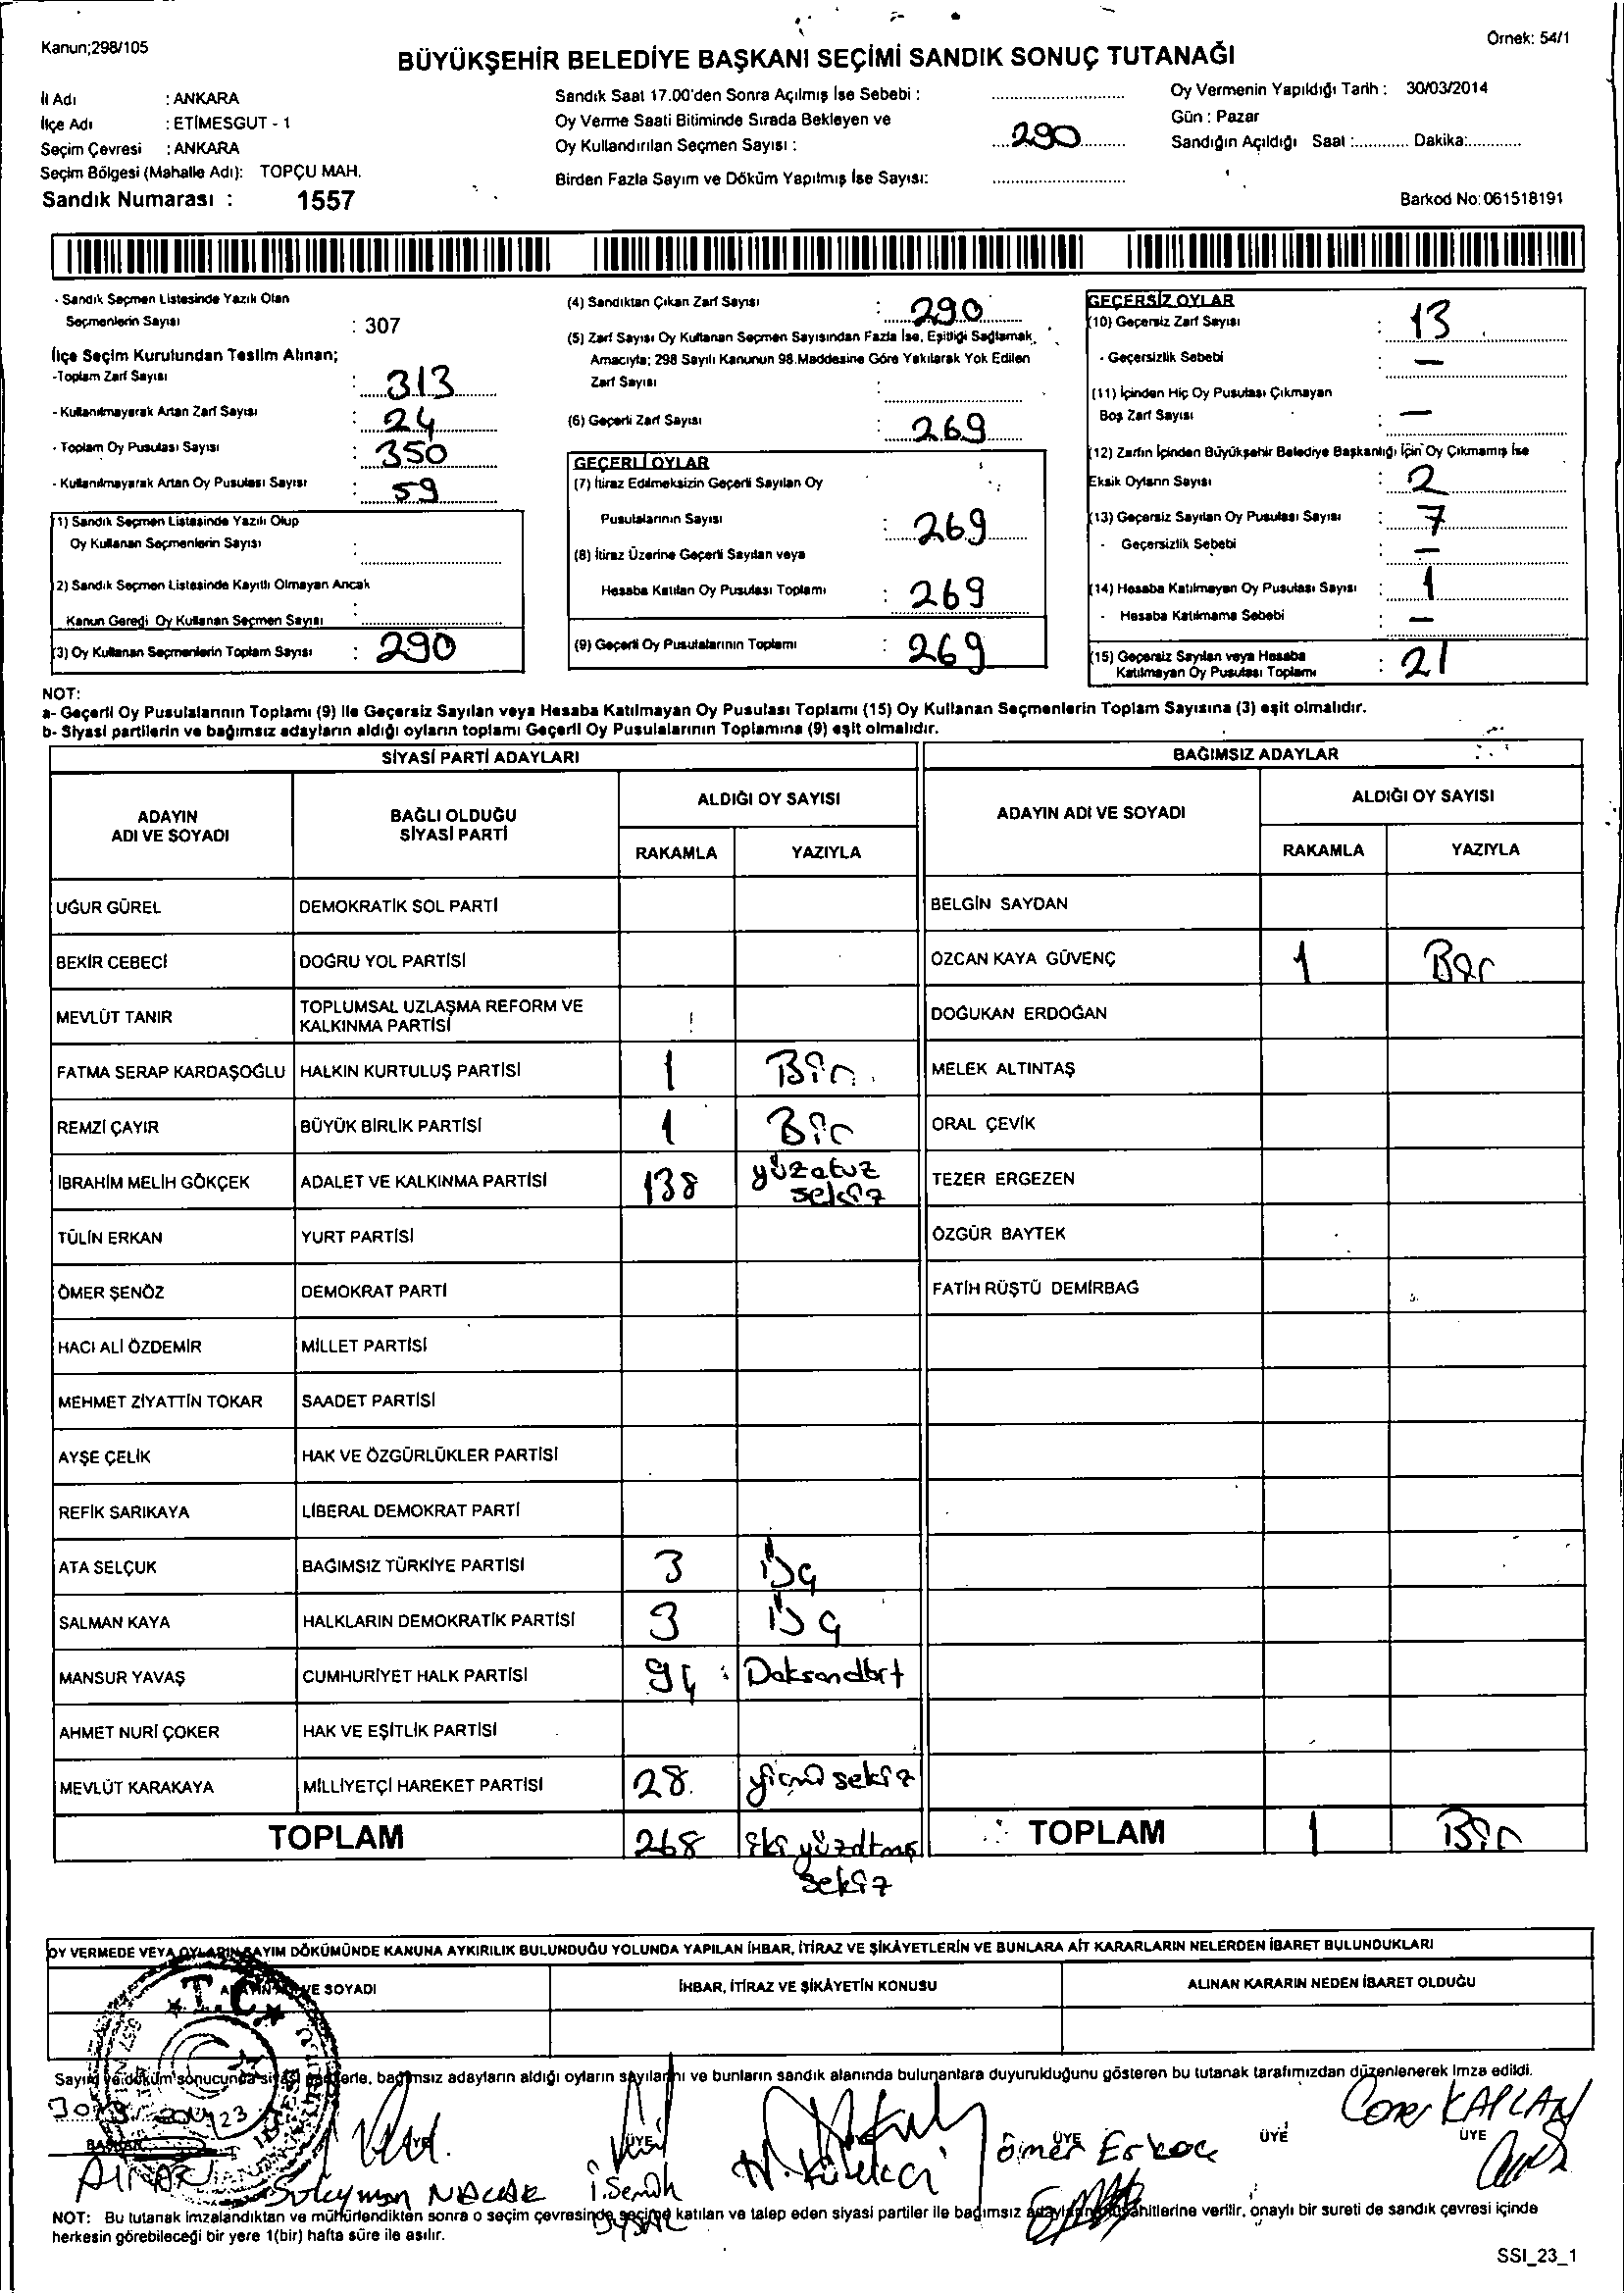 Kanun;298/105
Örnek: 54/1
BÜYÜKŞEHİR BELEDİYE BAŞKANI SEÇİMİ SANDIK SONUÇ TUTANAĞI
İl Adı : ANKARA
İlçe Adı : ETİMESGUT - 1
Seçim Çevresi : ANKARA
Seçim Bölgesi (Mahalle Adı): TOPÇU MAH.
Sandık Numarası : 1557
Sandık Saat 17.00'den Sonra Açılmış İse Sebebi :
Oy Verme Saati Bitiminde Sırada Bekleyen ve
Oy Kullandırılan Seçmen Sayısı : 290
Birden Fazla Sayım ve Döküm Yapılmış İse Sayısı:
Oy Vermenin Yapıldığı Tarih : 30/03/2014
Gün : Pazar
Sandığın Açıldığı Saat :............ Dakika:............
Barkod No:061518191
- Sandık Seçmen Listesinde Yazılı Olan
Seçmenlerin Sayısı : 307
İlçe Seçim Kurulundan Teslim Alınan;
-Toplam Zarf Sayısı : 313
- Kullanılmayarak Artan Zarf Sayısı : 24
- Toplam Oy Pusulası Sayısı : 350
- Kullanılmayarak Artan Oy Pusulası Sayısı : 59
(1) Sandık Seçmen Listesinde Yazılı Olup
Oy Kullanan Seçmenlerin Sayısı :
(2) Sandık Seçmen Listesinde Kayıtlı Olmayan Ancak
Kanun Gereği Oy Kullanan Seçmen Sayısı :
(3) Oy Kullanan Seçmenlerin Toplam Sayısı : 290
(4) Sandıktan Çıkan Zarf Sayısı : 290
(5) Zarf Sayısı Oy Kullanan Seçmen Sayısından Fazla İse, Eşitliği Sağlamak
Amacıyla; 298 Sayılı Kanunun 98.Maddesine Göre Yakılarak Yok Edilen
Zarf Sayısı :
(6) Geçerli Zarf Sayısı : 269
GEÇERLİ OYLAR
(7) İtiraz Edilmeksizin Geçerli Sayılan Oy
Pusulalarının Sayısı : 269
(8) İtiraz Üzerine Geçerli Sayılan veya
Hesaba Katılan Oy Pusulası Toplamı : 269
(9) Geçerli Oy Pusulalarının Toplamı : 269
GEÇERSİZ OYLAR
(10) Geçersiz Zarf Sayısı : 13
- Geçersizlik Sebebi : —
(11) İçinden Hiç Oy Pusulası Çıkmayan
Boş Zarf Sayısı : —
(12) Zarfın İçinden Büyükşehir Belediye Başkanlığı İçin Oy Çıkmamış İse
Eksik Oyların Sayısı : 2
(13) Geçersiz Sayılan Oy Pusulası Sayısı : 7
- Geçersizlik Sebebi : —
(14) Hesaba Katılmayan Oy Pusulası Sayısı : 1
- Hesaba Katılmama Sebebi : —
(15) Geçersiz Sayılan veya Hesaba
Katılmayan Oy Pusulası Toplamı : 21
NOT:
a- Geçerli Oy Pusulalarının Toplamı (9) ile Geçersiz Sayılan veya Hesaba Katılmayan Oy Pusulası Toplamı (15) Oy Kullanan Seçmenlerin Toplam Sayısına (3) eşit olmalıdır.
b- Siyasi partilerin ve bağımsız adayların aldığı oyların toplamı Geçerli Oy Pusulalarının Toplamına (9) eşit olmalıdır.
SİYASİ PARTİ ADAYLARI
ADAYIN ADI VE SOYADI
BAĞLI OLDUĞU SİYASİ PARTİ
ALDIĞI OY SAYISI
RAKAMLA YAZIYLA
UĞUR GÜREL DEMOKRATİK SOL PARTİ
BEKİR CEBECİ DOĞRU YOL PARTİSİ
MEVLÜT TANIR TOPLUMSAL UZLAŞMA REFORM VE KALKINMA PARTİSİ
FATMA SERAP KARDAŞOĞLU HALKIN KURTULUŞ PARTİSİ 1 Bir
REMZİ ÇAYIR BÜYÜK BİRLİK PARTİSİ 1 Bir
İBRAHİM MELİH GÖKÇEK ADALET VE KALKINMA PARTİSİ 138 yüzotuz sekiz
TÜLİN ERKAN YURT PARTİSİ
ÖMER ŞENÖZ DEMOKRAT PARTİ
HACI ALİ ÖZDEMİR MİLLET PARTİSİ
MEHMET ZİYATTİN TOKAR SAADET PARTİSİ
AYŞE ÇELİK HAK VE ÖZGÜRLÜKLER PARTİSİ
REFİK SARIKAYA LİBERAL DEMOKRAT PARTİ
ATA SELÇUK BAĞIMSIZ TÜRKİYE PARTİSİ 3 üç
SALMAN KAYA HALKLARIN DEMOKRATİK PARTİSİ 3 üç
MANSUR YAVAŞ CUMHURİYET HALK PARTİSİ 94 Doksandört
AHMET NURİ ÇOKER HAK VE EŞİTLİK PARTİSİ
MEVLÜT KARAKAYA MİLLİYETÇİ HAREKET PARTİSİ 28 yirmi sekiz
TOPLAM 268 iki yüzatmış sekiz
BAĞIMSIZ ADAYLAR
ADAYIN ADI VE SOYADI
ALDIĞI OY SAYISI
RAKAMLA YAZIYLA
BELGİN SAYDAN
ÖZCAN KAYA GÜVENÇ 1 Bir
DOĞUKAN ERDOĞAN
MELEK ALTINTAŞ
ORAL ÇEVİK
TEZER ERGEZEN
ÖZGÜR BAYTEK
FATİH RÜŞTÜ DEMİRBAĞ
TOPLAM 1 Bir
OY VERMEDE VEYA OYLARIN SAYIM DÖKÜMÜNDE KANUNA AYKIRILIK BULUNDUĞU YOLUNDA YAPILAN İHBAR, İTİRAZ VE ŞİKÂYETLERİN VE BUNLARA AİT KARARLARIN NELERDEN İBARET BULUNDUKLARI
VE SOYADI
İHBAR, İTİRAZ VE ŞİKÂYETİN KONUSU
ALINAN KARARIN NEDEN İBARET OLDUĞU
T.C.
Sayım ve döküm sonucunda siyasi partilerle, bağımsız adayların aldığı oyların sayılarını ve bunların sandık alanında bulunanlara duyurulduğunu gösteren bu tutanak tarafımızdan düzenlenerek imza edildi.
BAŞKAN ÜYE ÜYE ÜYE ÜYE
Süleyman NACAR
i.Semih UYSAL
N.Külekci
Ömer Erkoç
Caner KAPLAN
NOT: Bu tutanak imzalandıktan ve mühürlendikten sonra o seçim çevresinde seçime katılan ve talep eden siyasi partiler ile bağımsız adayların müşahitlerine verilir, onaylı bir sureti de sandık çevresi içinde
herkesin görebileceği bir yere 1(bir) hafta süre ile asılır.
SSI_23_1